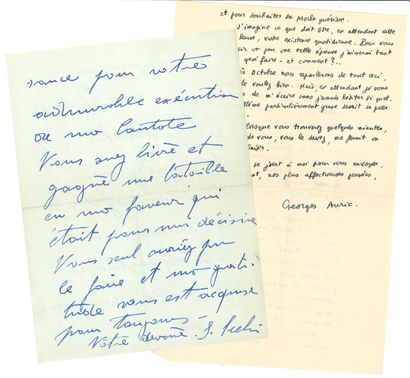 sance pour votre
admirable exécution
de ma cantate
Vous avez livré et
gagné une bataille
en ma faveur qui
était pour moi décisive
Vous seul auriez pu
le faire et ma grati-
tude vous est acquise
pour toujours
Votre dévoué
et vous souhaiter
j'imagine ce que doit être, en attendant cette
votre existence quotidienne. Pour vous
un peu une telle épreuve j'aimerais tant
faire - et comment ?..
Octobre nous reparlerons de tout ceci,
Mais, en attendant, je vous
de m'écrire sans jamais hésiter si quel-
particulièrement
lorsque vous trouverez quelques minutes,
de vous, vous le savez, me ferait un
se joint à moi pour vous envoyer,
nos plus affectueuses pensées,
Georges Auric.